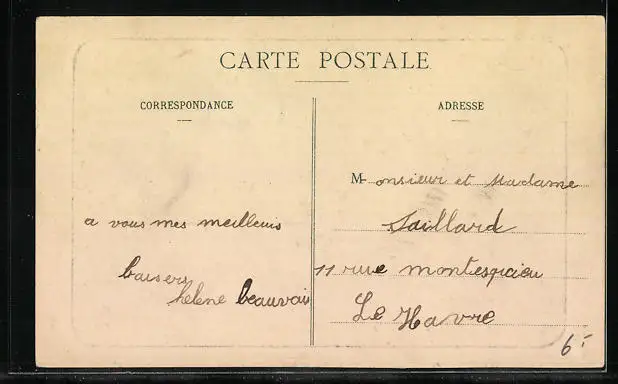 CARTE POSTALE
CORRESPONDANCE
ADRESSE
a vous mes meilleurs
baisers
helene beauvais
Monsieur et Madame
Saillard
11 rue montesquieu
Le Havre
6